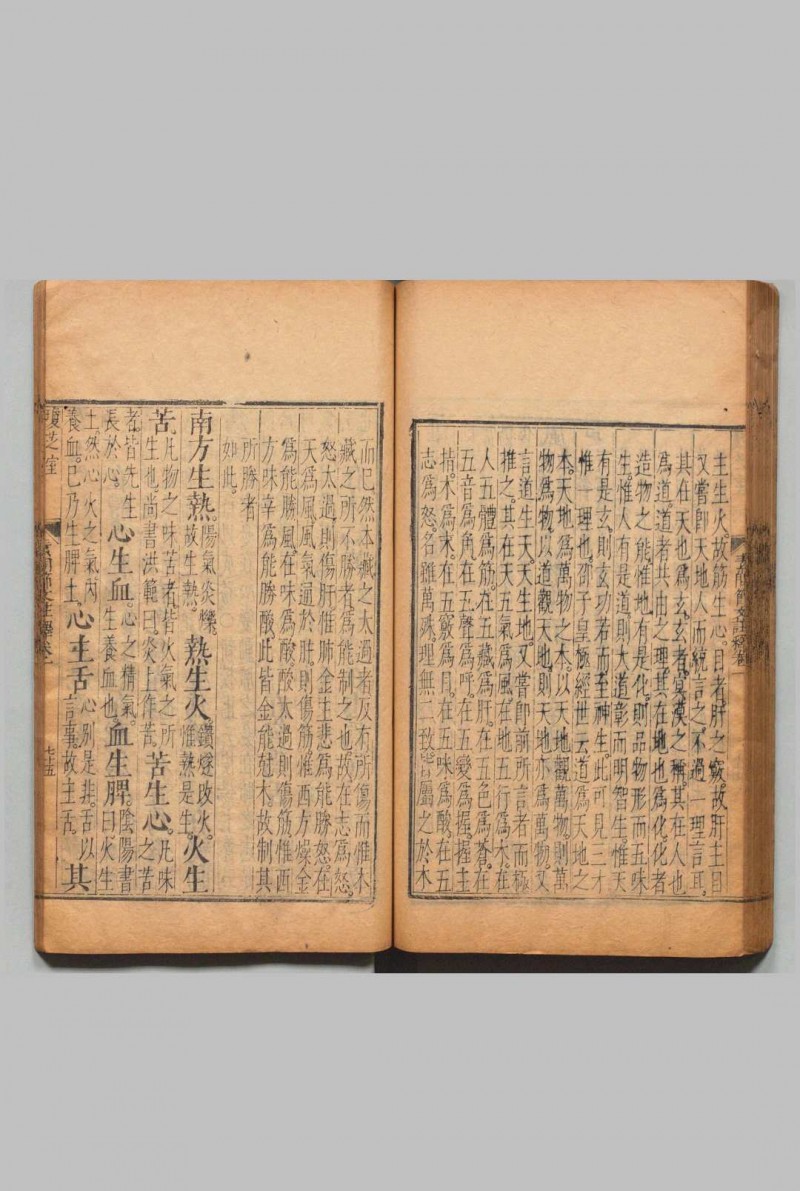 主生火故筋生心目者肝之竅故肝主目
又嘗即天地人而統言之不過一理言耳
其在天也爲玄玄者冥漠之稱其在人也
爲道道者共由之理其在地也爲化化者
造物之能惟地有是化則品物形而五味
生惟人有是道則大道彰而明智生惟天
有是玄則玄功若而至神生此可見三才
惟一理也邵子皇極經世云道爲天地之
本天地爲萬物之本以天地觀萬物則萬
物爲物以道觀天地則天地亦爲萬物又
言道生天天生地又嘗即前所言者而極
推之其在天五氣爲風在地五行爲木在
人五體爲筋在五藏爲肝在五色爲蒼在
五音爲角在五聲爲呼在五變爲握握主
掿木爲末在五竅爲目在五味爲酸在五
志爲怒名雖萬殊理無二致皆屬之於木
而已然本藏之太過者反有所傷而惟木
藏之所不勝者爲能制之也故在志爲怒
怒太過則傷肝惟肺金生悲爲能勝怒在
天爲風風氣通於肝則傷筋惟西方燥金
爲能勝風在味爲酸酸太過則傷筋惟西
方味辛爲能勝酸此皆金能尅木故制其
所勝者
如此
南方生熱陽氣炎爍故生熱熱生火鑽燧改火惟熱是生火生
苦凡物之味苦者皆火氣之所生也尚書洪範曰炎上作苦苦生心凡味之苦
者皆先生長於心心生血心之精氣生養血也血生脾陰陽書曰火生
土然心火之氣內養血已乃生脾土心主舌心別是非舌以言事故主舌其
七十五